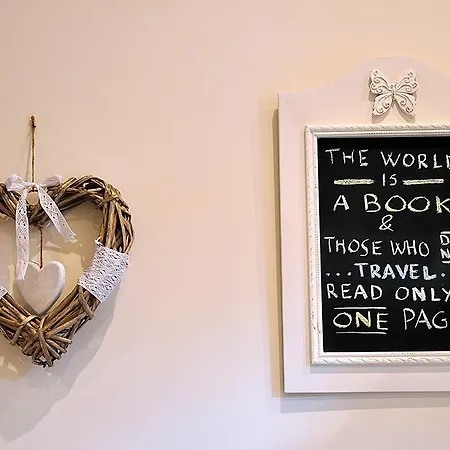 THE WORLD
IS
A BOOK
&
THOSE WHO DO N
...TRAVEL..
READ ONLY
ONE PAG